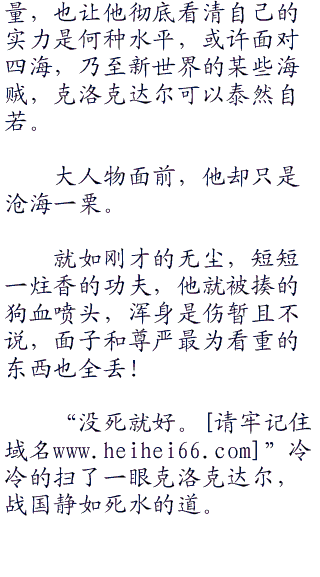 量，也让他彻底看清自己的
实力是何种水平，或许面对
四海，乃至新世界的某些海
贼，克洛克达尔可以泰然自
若。
大人物面前，他却只是
沧海一栗。
就如刚才的无尘，短短
一炷香的功夫，他就被揍的
狗血喷头，浑身是伤暂且不
说，面子和尊严最为看重的
东西也全丢！
“没死就好。[请牢记住
域名www.heihei66.com]”冷
冷的扫了一眼克洛克达尔，
战国静如死水的道。